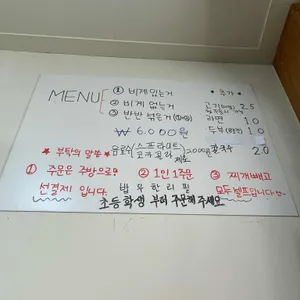 MENU
① 비계 있는거
② 비계 없는거
③ 반반 섞은거 (①+②)
₩ 6.000원
* 추가
고기 2.5
라면 1.0
두부 1.0
칼국수 2.0
* 부탁의 말씀 *
음료수 (스프라이트 코카콜라) 2.000원
① 주문은 주방으로?
② 1인 1주문
③ 찌개 빼고
선결제 입니다.
밥 무한리필
모두 셀프입니다
초등학생 부터 주문해주세요